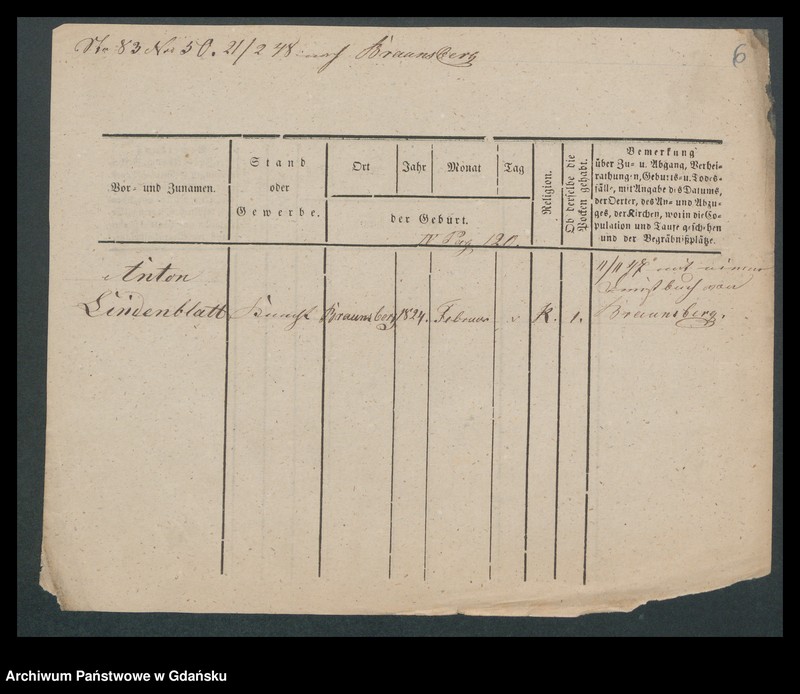 No 50. 21/2 48 nach Braunsberg
6
Vor- und Zunamen.
Stand
oder
Gewerbe.
Ort
Jahr
Monat
Tag
der Geburt.
Religion.
Ob derselbe die
Pocken gehabt.
Bemerkung
über Zu- u. Abgang, Verhei-
rathungen, Geburts- u. Todes-
fälle, mit Angabe des Datums,
der Oerter, des An- und Abzu-
ges, der Kirchen, worin die Co-
pulation und Taufe geschehen
und der Begräbnißplätze.
IV Pag 120.
Anton
Lindenblatt
Knecht
Braunsberg
1824.
Februar
K.
1.
mit einem
Dienstbuch von
Braunsberg.
Archiwum Państwowe w Gdańsku